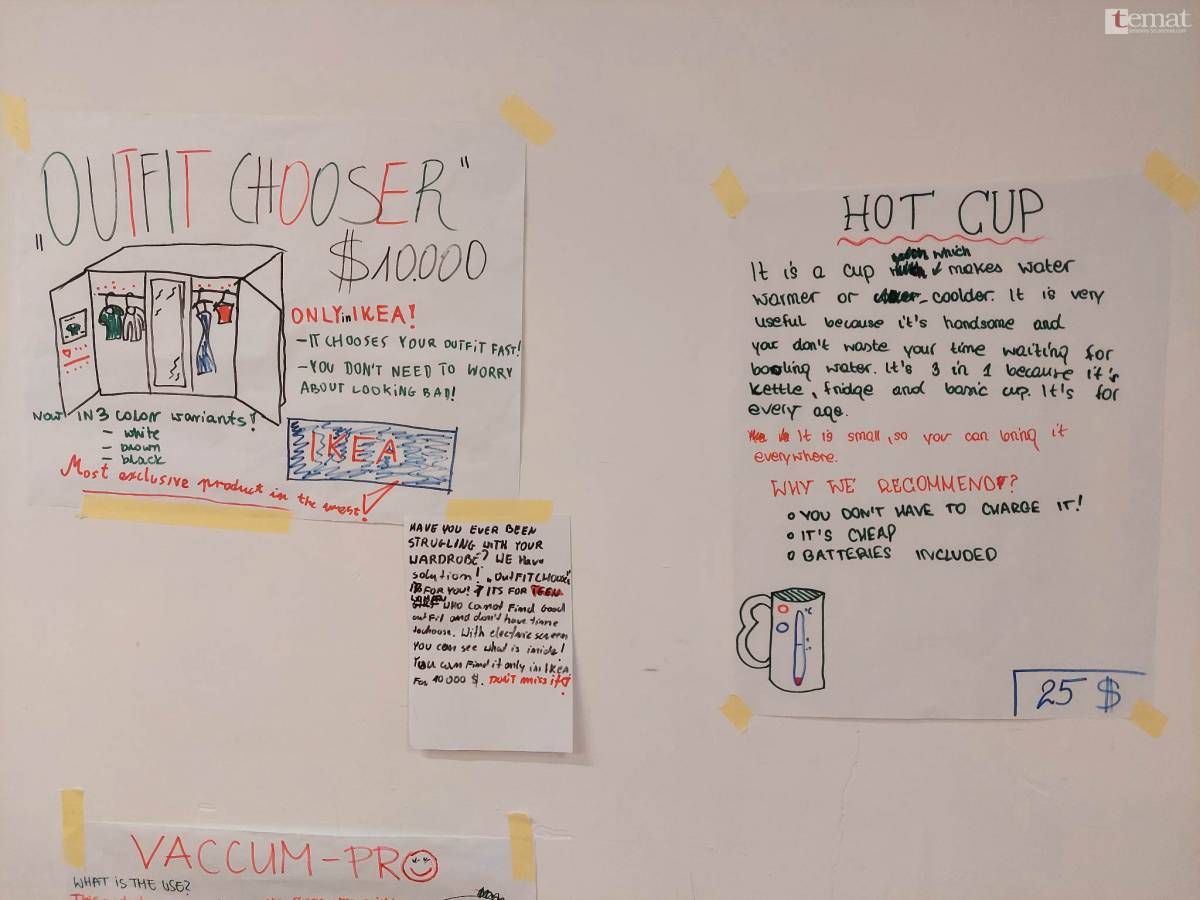 temat
„OUTFIT CHOOSER"
$10.000
ONLY in IKEA!
– IT CHOOSES YOUR OUTFIT FAST!
– YOU DON'T NEED TO WORRY
ABOUT LOOKING BAD!
NOW IN 3 COLOR variants!
– white
– brown
– black
IKEA
Most exclusive product in the west!
HAVE YOU EVER BEEN
STRUGLING WITH YOUR
WARDROBE? WE Have
solution! „OutFITCHOUSE"
IS FOR YOU! ITS FOR TEEN
WHO Canot Find Good
outFit and don't have time
tochoose. With electric screen
You can see what is inside!
You can Find it only in IKEA
For 10 000 $. DON'T miss it!
HOT CUP
which
It is a cup makes water
warmer or coolder. It is very
useful because it's handsome and
you don't waste your time waiting for
booling water. It's 3 in 1 because it's
kettle, fridge and basic cup. It's for
every age.
It is small, so you can bring it
everywhere.
WHY WE RECOMMEND?
o YOU DON'T HAVE TO CHARGE IT!
o IT'S CHEAP
o BATTERIES INCLUDED
°C
25 $
VACCUM-PRO
WHAT IS THE USE?